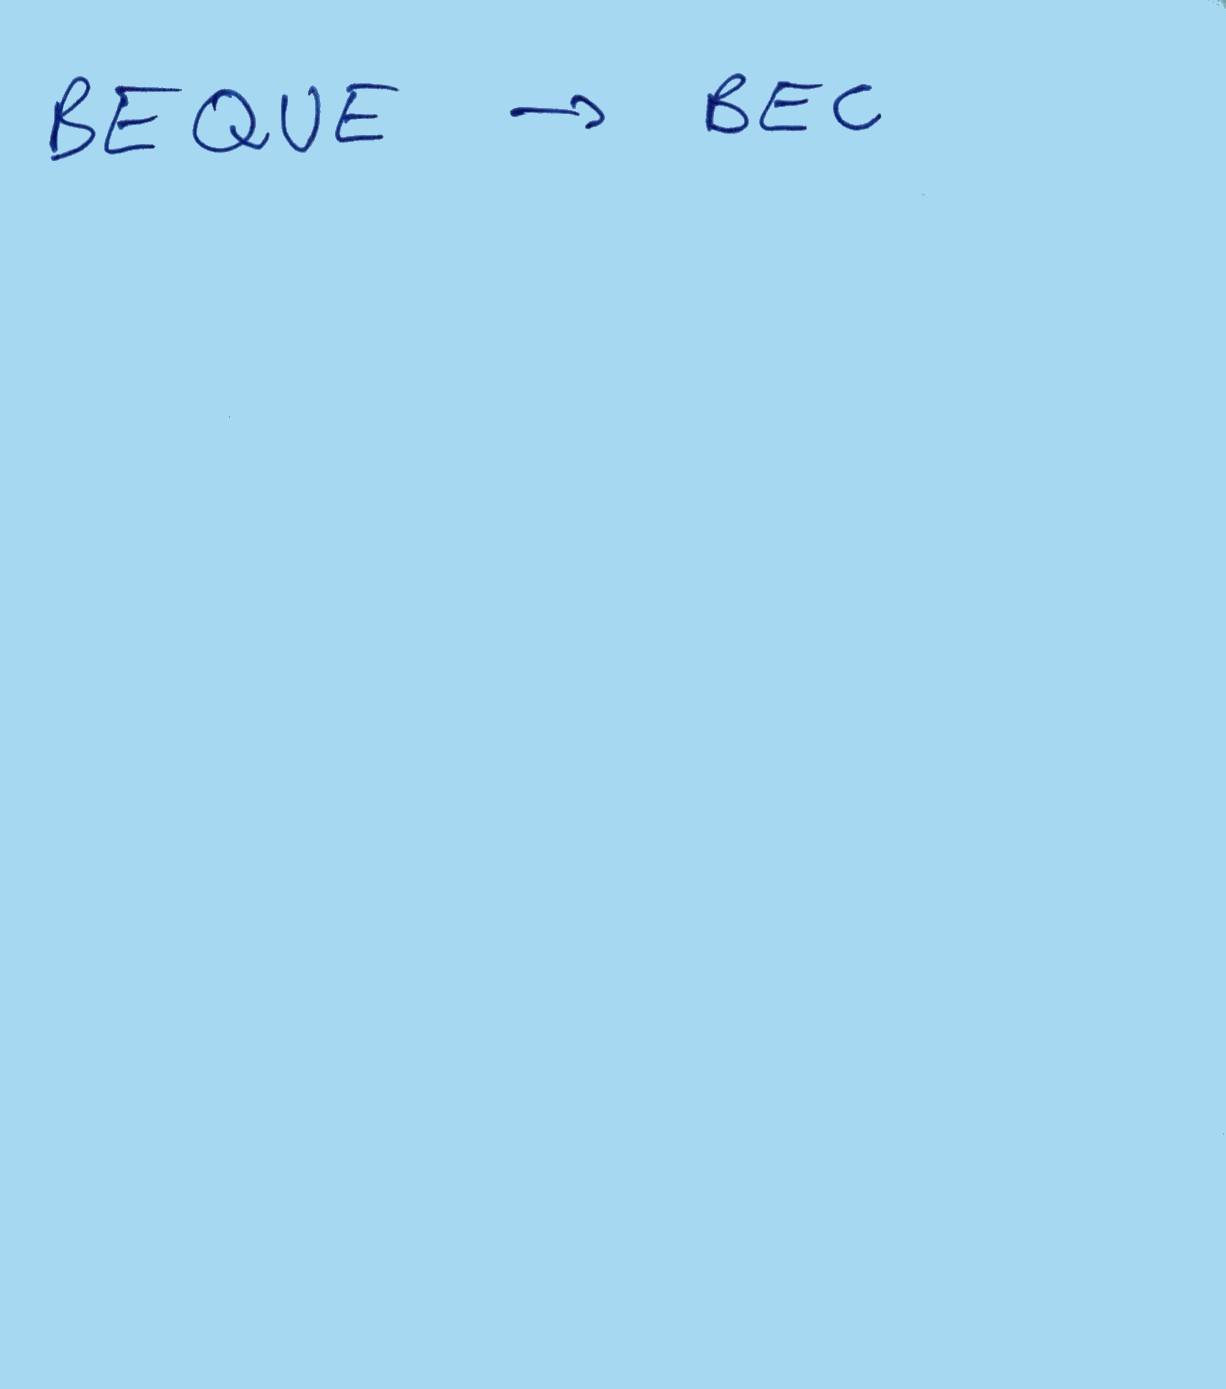 BEQUE → BEC